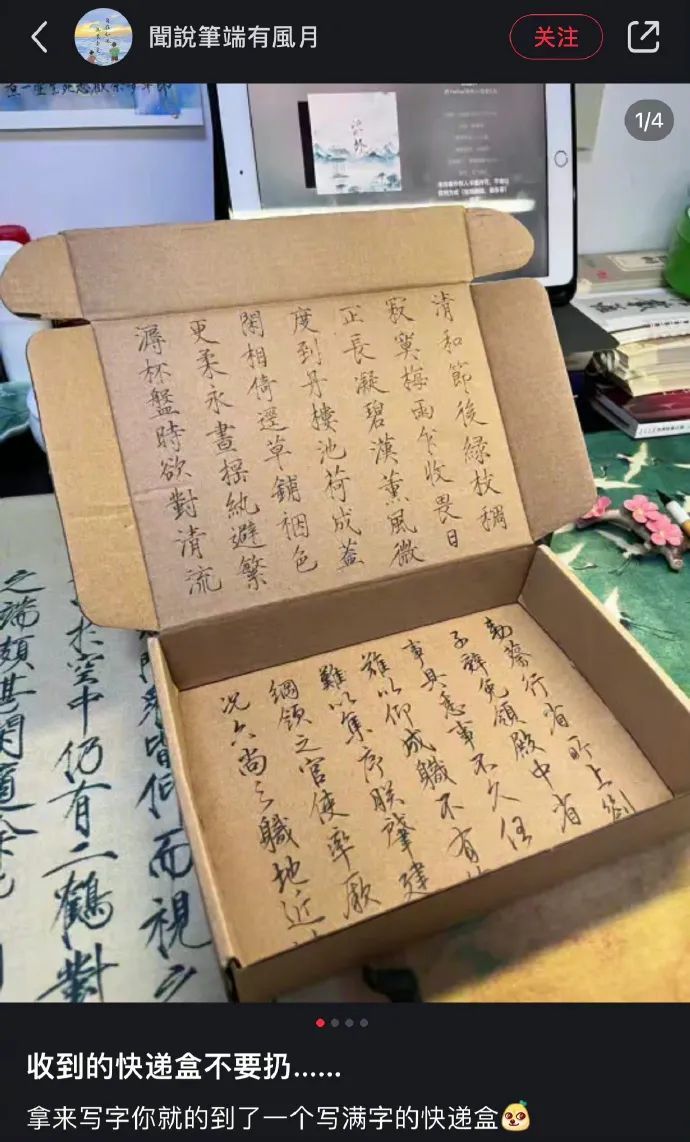 聞說筆端有風月
关注
1/4
清和節後綠枝稠
寂寞梅雨乍收畏日
正長凝碧漢薰風微
度到丹樓池荷成蓋
閑相倚逕草鋪裀色
更柔永晝搖紈避繁
溽杯盤時欲對清流
勅蔡行省所上劄
子辭免領殿中省
事具悉事不久任
難以仰成職不有
難以集序朕肇建
綱領之官使率厥
況六尚之職地近
皆仰而視之
於空中仍有二鶴對
之端頗甚閑適
收到的快递盒不要扔......
拿来写字你就的到了一个写满字的快递盒